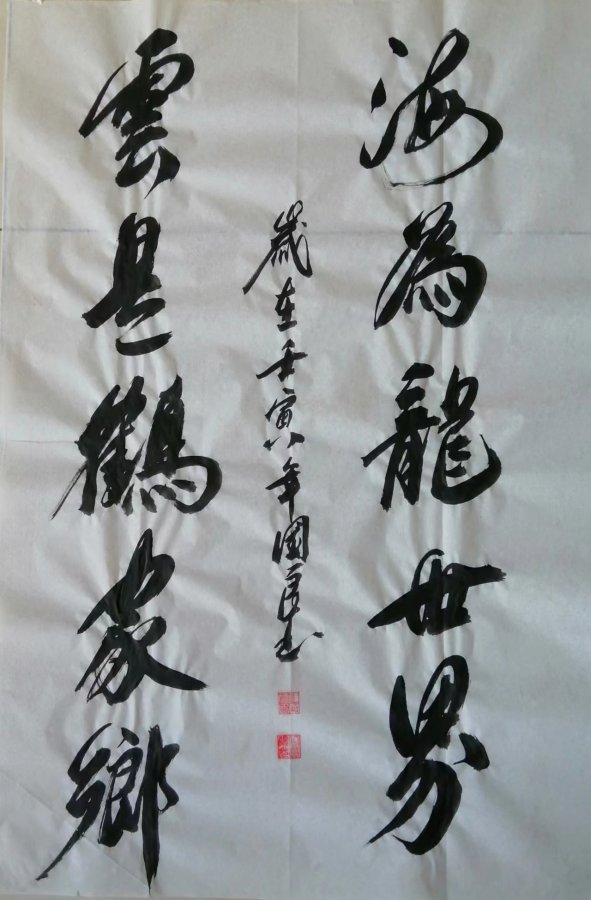 海為龍世界
雲是鶴家鄉
歲在壬寅年國良书